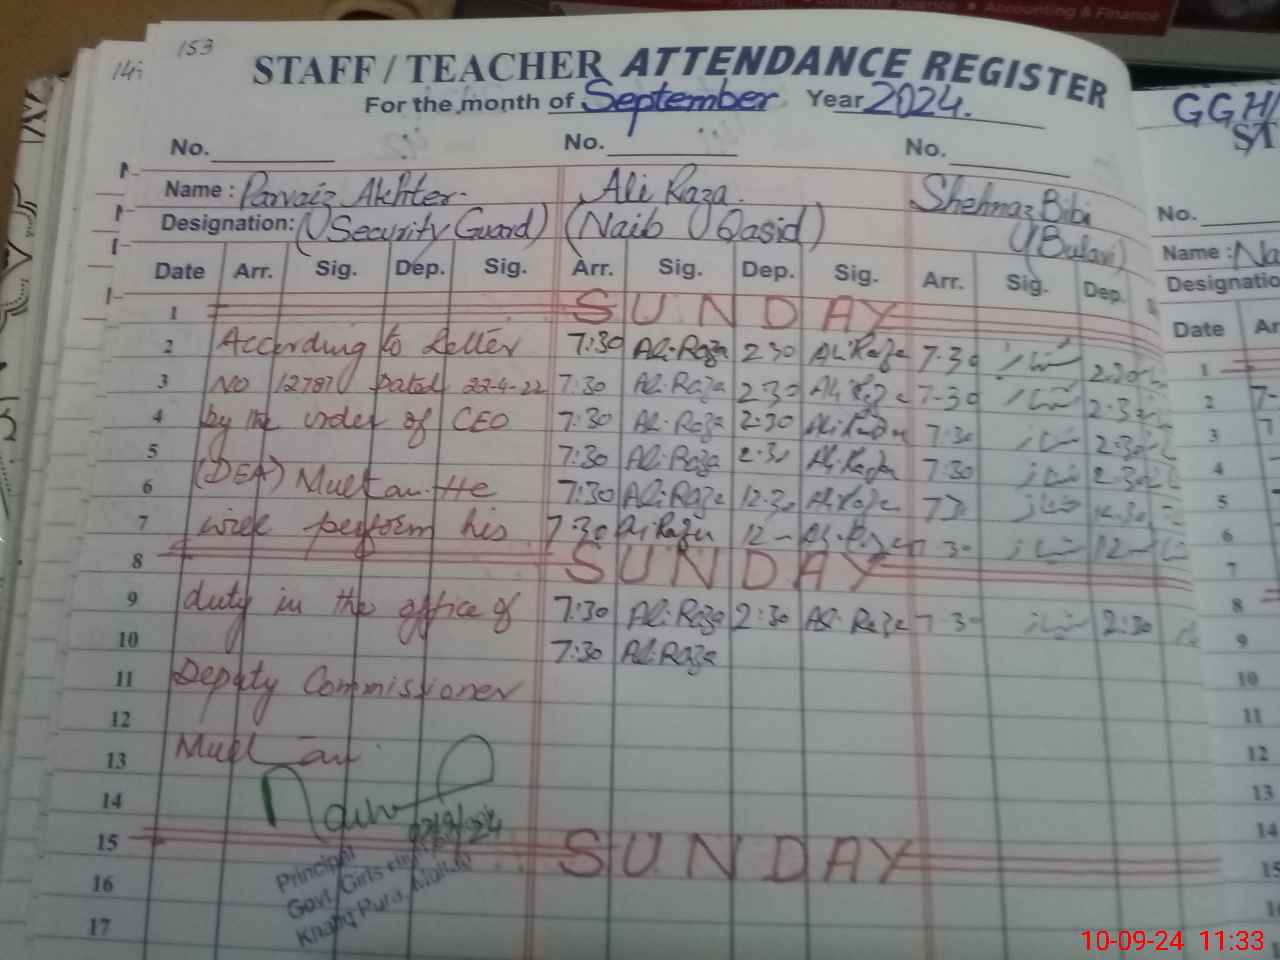 Computer Science • Accounting & Finance
153
STAFF / TEACHER ATTENDANCE REGISTER
For the month of September Year 2024.
No. No. No.
Name : Parvaiz Akhter. Ali Raza. Shehnaz Bibi
Designation: (Security Guard) (Naib Qasid) (Bulavi)
Date Arr. Sig. Dep. Sig. Arr. Sig. Dep. Sig. Arr. Sig. Dep.
1 SUNDAY
2 According to Letter 7:30 Ali Raza 2:30 Ali Raza 7:30 شہناز 2:30
3 No 12787 Dated 22-4-22 7:30 Ali Raza 2:30 Ali Raza 7:30 شہناز 2:30
4 by the order of CEO 7:30 Ali Raza 2:30 Ali Raza 7:30 شہناز 2:30
5 7:30 Ali Raza 2:30 Ali Raza 7:30 شہناز 2:30
6 (DEA) Multan. He 7:30 Ali Raza 12:30 Ali Raza 7:30 شہناز 12:30
7 will perform his 7:30 Ali Raza 12 - Ali Raza 7:30 شہناز 12 -
8 SUNDAY
9 duty in the office of 7:30 Ali Raza 2:30 Ali Raza 7:30 شہناز 2:30
10 7:30 Ali Raza
11 Deputy Commissioner
12
13 Multan
14
15 SUNDAY
Principal
16
Govt. Girls
Khang Pura, Multan
17
GGH/
ST
No.
Name : Na
Designatio
Date Ar
1
2 7-
3 7
4
5
6
7
8
9
10
11
12
13
14
15
10-09-24 11:33